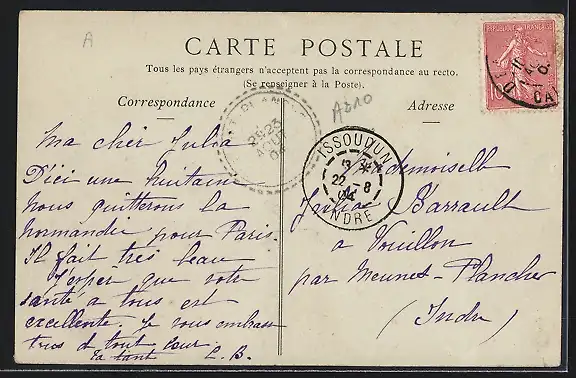 A
CARTE POSTALE
Tous les pays étrangers n'acceptent pas la correspondance au recto.
(Se renseigner à la Poste).
Correspondance
Adresse
REPUBLIQUE FRANÇAISE
10
CA
23
AOUT
ISSOUDUN
22 - 8
04
INDRE
Ma cher Julia
D'ici une huitaine
nous quitterons la
normandie pour Paris.
Il fait très beau
J'espère que votre
santé a tous est
excellente. Je vous embrasse
tous de tout cœur
ta tante L. B.
Mademoiselle
Julia Barrault
a Vouillon
par Meunet-Planches
(Indre)